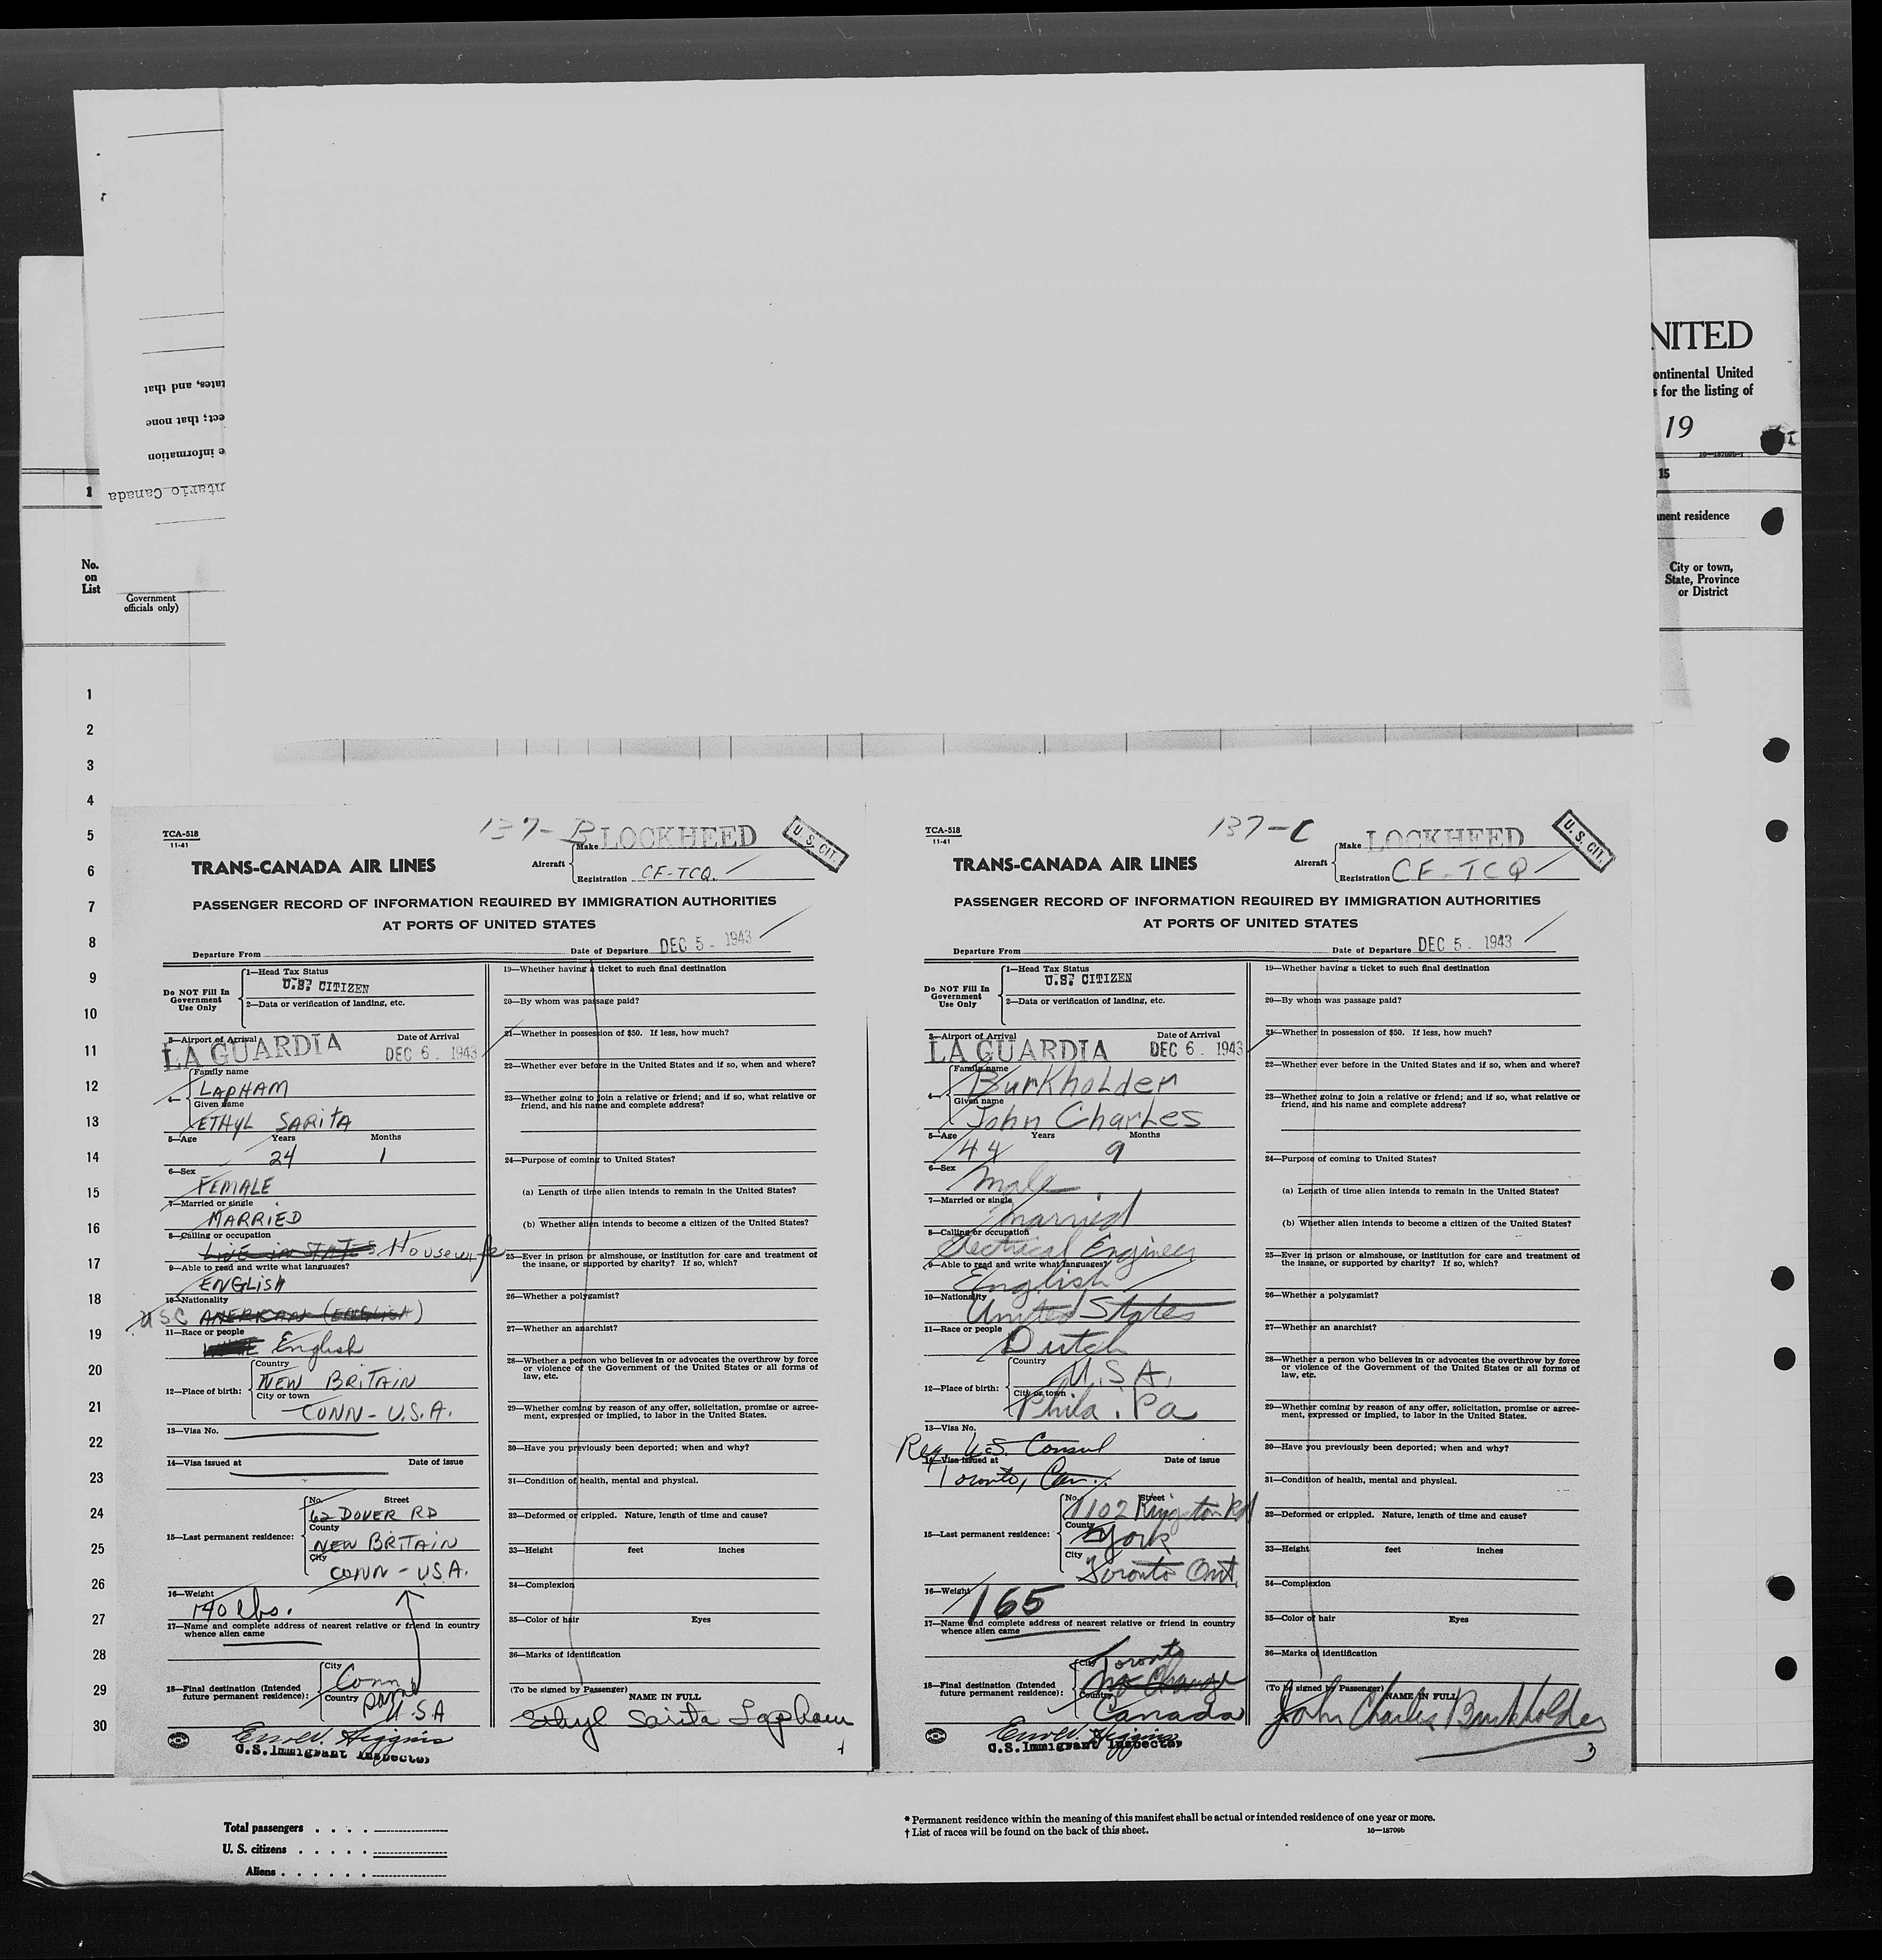 NITED
ontinental United
s for the listing of
19
16—18709b-1
tates, and that
ect; that none
e information
ntario Canada
1
15
nent residence
No.
on
List
Government
officials only)
City or town,
State, Province
or District
1
2
3
4
5
6
7
8
9
10
11
12
13
14
15
16
17
18
19
20
21
22
23
24
25
26
27
28
29
30
TCA-518
11-41
137-B
LOCKHEED
U. S. CIT.
TRANS-CANADA AIR LINES
Aircraft
Make
Registration CF-TCQ.
PASSENGER RECORD OF INFORMATION REQUIRED BY IMMIGRATION AUTHORITIES
AT PORTS OF UNITED STATES
Departure From
Date of Departure DEC 5 - 1943
Do NOT Fill In
Government
Use Only
1—Head Tax Status
U.S. CITIZEN
2—Data or verification of landing, etc.
3—Airport of Arrival
Date of Arrival
LA GUARDIA DEC 6 . 1943
4—
Family name
LAPHAM
Given name
ETHYL SARITA
5—Age Years Months
24 1
6—Sex
FEMALE
7—Married or single
MARRIED
8—Calling or occupation
LIVE IN STATES Housewife
9—Able to read and write what languages?
ENGLISH
10—Nationality
USC AMERICAN (ENGLISH)
11—Race or people
English
12—Place of birth:
Country
NEW BRITAIN
City or town
CONN - U.S.A.
13—Visa No.
14—Visa issued at Date of issue
15—Last permanent residence:
No. Street
62 DOVER RD
County
NEW BRITAIN
City
CONN - U.S.A.
16—Weight
140 lbs.
17—Name and complete address of nearest relative or friend in country
whence alien came
18—Final destination (Intended
future permanent residence):
City
Conn
Country
U.S.A
U.S. Immigrant Inspector
19—Whether having a ticket to such final destination
20—By whom was passage paid?
21—Whether in possession of $50. If less, how much?
22—Whether ever before in the United States and if so, when and where?
23—Whether going to join a relative or friend; and if so, what relative or
friend, and his name and complete address?
24—Purpose of coming to United States?
(a) Length of time alien intends to remain in the United States?
(b) Whether alien intends to become a citizen of the United States?
25—Ever in prison or almshouse, or institution for care and treatment of
the insane, or supported by charity? If so, which?
26—Whether a polygamist?
27—Whether an anarchist?
28—Whether a person who believes in or advocates the overthrow by force
or violence of the Government of the United States or all forms of
law, etc.
29—Whether coming by reason of any offer, solicitation, promise or agree-
ment, expressed or implied, to labor in the United States.
30—Have you previously been deported; when and why?
31—Condition of health, mental and physical.
32—Deformed or crippled. Nature, length of time and cause?
33—Height feet inches
34—Complexion
35—Color of hair Eyes
36—Marks of identification
(To be signed by Passenger)
NAME IN FULL
Ethyl Sarita Lapham
TCA-518
11-41
137-C
LOCKHEED
U. S. CIT.
TRANS-CANADA AIR LINES
Aircraft
Make
Registration CF-TCQ
PASSENGER RECORD OF INFORMATION REQUIRED BY IMMIGRATION AUTHORITIES
AT PORTS OF UNITED STATES
Departure From
Date of Departure DEC 5 - 1943
Do NOT Fill In
Government
Use Only
1—Head Tax Status
U.S. CITIZEN
2—Data or verification of landing, etc.
3—Airport of Arrival
Date of Arrival
LA GUARDIA DEC 6 . 1943
4—
Family name
Burkholder
Given name
John Charles
5—Age Years Months
44 9
6—Sex
Male
7—Married or single
Married
8—Calling or occupation
Electrical Engineer
9—Able to read and write what languages?
English
10—Nationality
United States
11—Race or people
Dutch
12—Place of birth:
Country
U.S.A.
City or town
Phila. Pa
13—Visa No.
Reg. U.S. Consul
14—Visa issued at Date of issue
Toronto, Can.
15—Last permanent residence:
No. Street
1102 Kingston Rd
County
York
City
Toronto Ont.
16—Weight
165
17—Name and complete address of nearest relative or friend in country
whence alien came
18—Final destination (Intended
future permanent residence):
City
Toronto
No Change
Country
Canada
U.S. Immigrant Inspector
19—Whether having a ticket to such final destination
20—By whom was passage paid?
21—Whether in possession of $50. If less, how much?
22—Whether ever before in the United States and if so, when and where?
23—Whether going to join a relative or friend; and if so, what relative or
friend, and his name and complete address?
24—Purpose of coming to United States?
(a) Length of time alien intends to remain in the United States?
(b) Whether alien intends to become a citizen of the United States?
25—Ever in prison or almshouse, or institution for care and treatment of
the insane, or supported by charity? If so, which?
26—Whether a polygamist?
27—Whether an anarchist?
28—Whether a person who believes in or advocates the overthrow by force
or violence of the Government of the United States or all forms of
law, etc.
29—Whether coming by reason of any offer, solicitation, promise or agree-
ment, expressed or implied, to labor in the United States.
30—Have you previously been deported; when and why?
31—Condition of health, mental and physical.
32—Deformed or crippled. Nature, length of time and cause?
33—Height feet inches
34—Complexion
35—Color of hair Eyes
36—Marks of identification
(To be signed by Passenger)
NAME IN FULL
John Charles Burkholder
3
Total passengers . . . .
U. S. citizens . . . . .
Aliens . . . . . .
* Permanent residence within the meaning of this manifest shall be actual or intended residence of one year or more.
† List of races will be found on the back of this sheet.
16—18709b